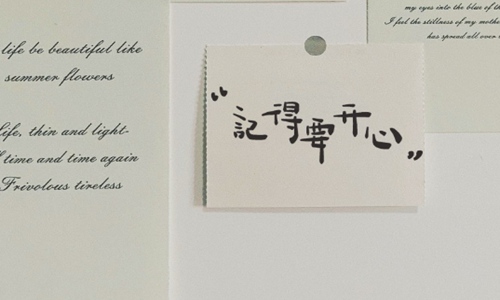 life be beautiful like
summer flowers
life, thin and light-
time and time again
Frivolous tireless
“記得要开心”
my eyes into the blue of th
I feel the stillness of my mothe
has spread all over